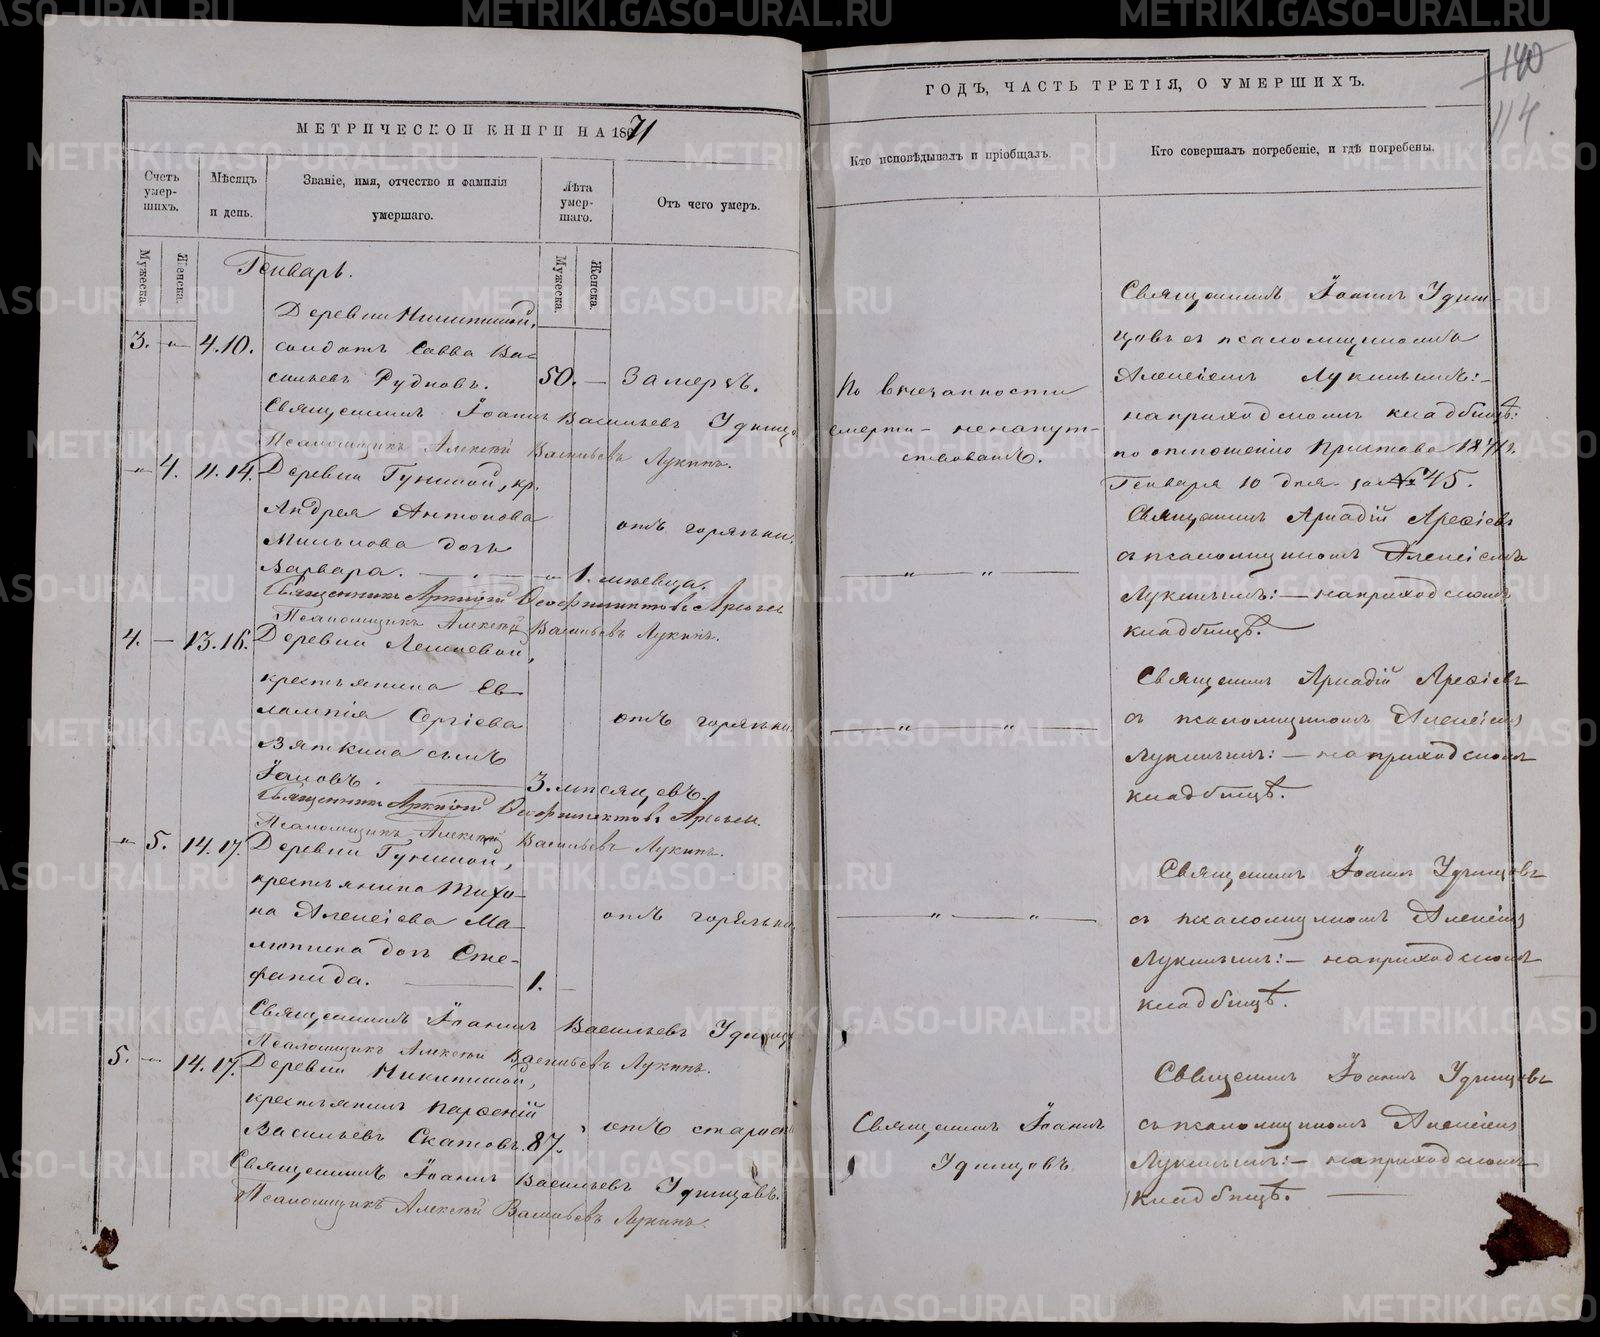 МЕТРИЧЕСКОЙ КНИГИ НА 1871
Счетъ умер-
шихъ.
Мѣсяцъ
и день.
Званіе, имя, отчество и фамилія
умершаго.
Лѣта
умер-
шаго.
Отъ чего умеръ.
Мужеска.
Женска.
Мужеска.
Женска.
Генварь.
Деревни Никитиной,
3. - „ 4.10. солдатъ Савва Ва-
сильевъ Рудновъ. 50. — Замерзъ.
Священникъ Іоаннъ Васильевъ Удинцо
Псаломщикъ Алексѣй Васильевъ Лукинъ.
„ 4. 11.14. Деревни Гуниной, кр.
Андрея Антонова отъ горячки.
Милькова дочь
Варвара. — „ 1. мѣсяца.
Священникъ Аркадій Ѳеофилактовъ Арефьев
Псаломщикъ Алексѣй Васильевъ Лукинъ.
4. — 13.16. Деревни
крестьянина Ев-
лампія Сергіева отъ горячки
Вяткина сынъ
Іаковъ. — 3. мѣсяцевъ.
Священникъ Аркадій Ѳеофилактовъ Арефьев.
Псаломщикъ Алексѣй Васильевъ Лукинъ.
„ 5. 14.17. Деревни Гуниной,
крестьянина Тихо-
на Алексіева Ма- отъ горячки
лютина дочь Сте-
фанида. — 1. —
Священникъ Іоаннъ Васильевъ Удинцо
Псаломщикъ Алексѣй Васильевъ Лукинъ.
5. — 14.17. Деревни Никитиной,
крестьянинъ Парѳеній
Васильевъ Скатовъ. 87. отъ старости
Священникъ Іоаннъ Васильевъ Удинцовъ.
Псаломщикъ Алексѣй Васильевъ Лукинъ.
140
114.
ГОДЪ, ЧАСТЬ ТРЕТІЯ, О УМЕРШИХЪ.
Кто исповѣдывалъ и пріобщалъ.
Кто совершалъ погребеніе, и гдѣ погребены.
По внезапности
смерти - ненапут-
ствованъ.
Священникъ Іоаннъ Удин-
цовъ съ псаломщикомъ
Алексіемъ Лукинымъ: -
на приходскомъ кладбищѣ:
по отношенію Пристава 1871 г.
Генваря 10 дня за № 45.
— „ — „ —
Священникъ Аркадій Арефіевъ
съ псаломщикомъ Алексіемъ
Лукинымъ: — на приходскомъ
кладбищѣ.
— „ — „ —
Священникъ Аркадій Арефіевъ
съ псаломщикомъ Алексіемъ
Лукинымъ: — на приходскомъ
кладбищѣ.
— „ — „ —
Священникъ Іоаннъ Удинцовъ
съ псаломщикомъ Алексіемъ
Лукинымъ: — на приходскомъ
кладбищѣ.
Священникъ Іоаннъ
Удинцовъ.
Священникъ Іоаннъ Удинцовъ
съ псаломщикомъ Алексіемъ
Лукинымъ: — на приходскомъ
кладбищѣ. —
METRIKI.GASO-URAL.RU